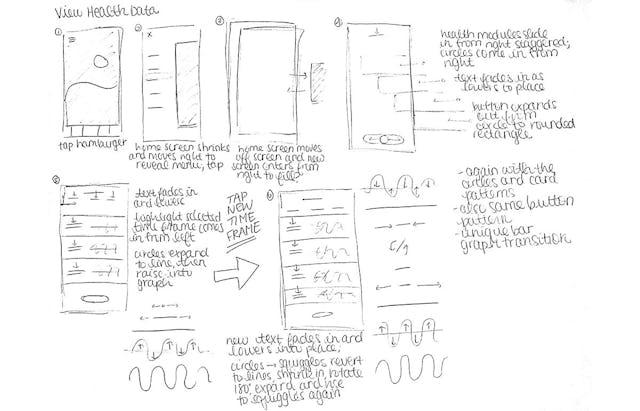 View Health Data
①
②
③
④
tap hamburger
home screen shrinks
and moves right to
reveal menu, tap
home screen moves
off screen and new
screen enters from
right to fill
health modules slide
in from right staggered;
circles come in from
right
text fades in as
lowers to place
button expands
out from
circle to rounded
rectangle
text fades in
and lowers
highlight selected
time frame comes
in from left
circles expand
to line, then
raise into
graph
TAP
NEW
TIME
FRAME
new text fades in and
lowers into place;
circles → squiggles revert
to lines, shrink in, rotate
180° expand and rise
to squiggles again
- again with the
circles and card
patterns
- also same button
pattern
- unique bar
graph transition